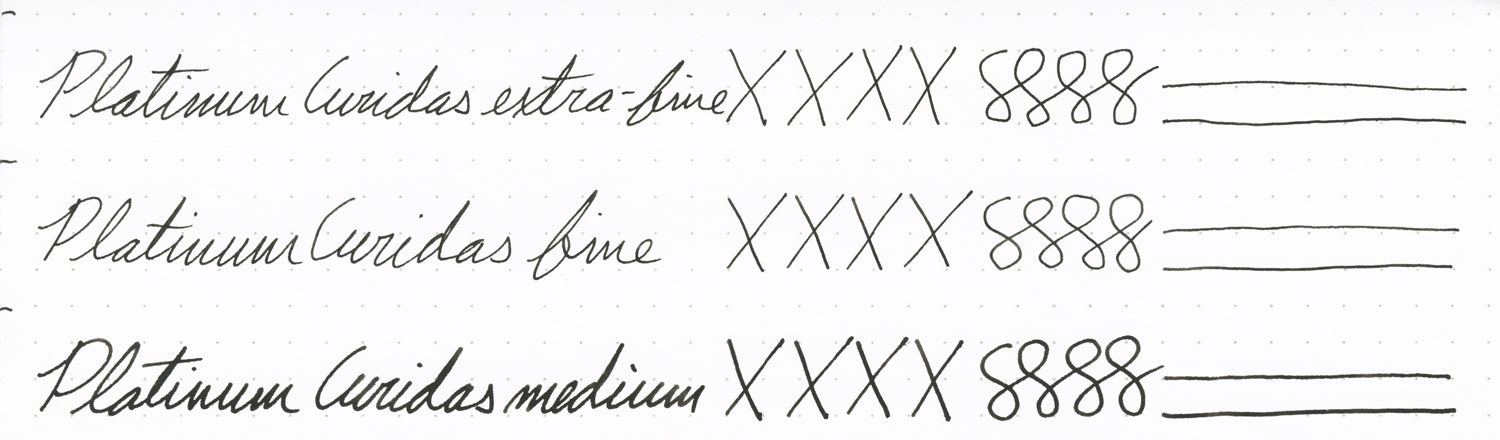 Platinum Curidas extra-fine XXXX 8888
Platinum Curidas fine XXXX 8888
Platinum Curidas medium XXXX 8888